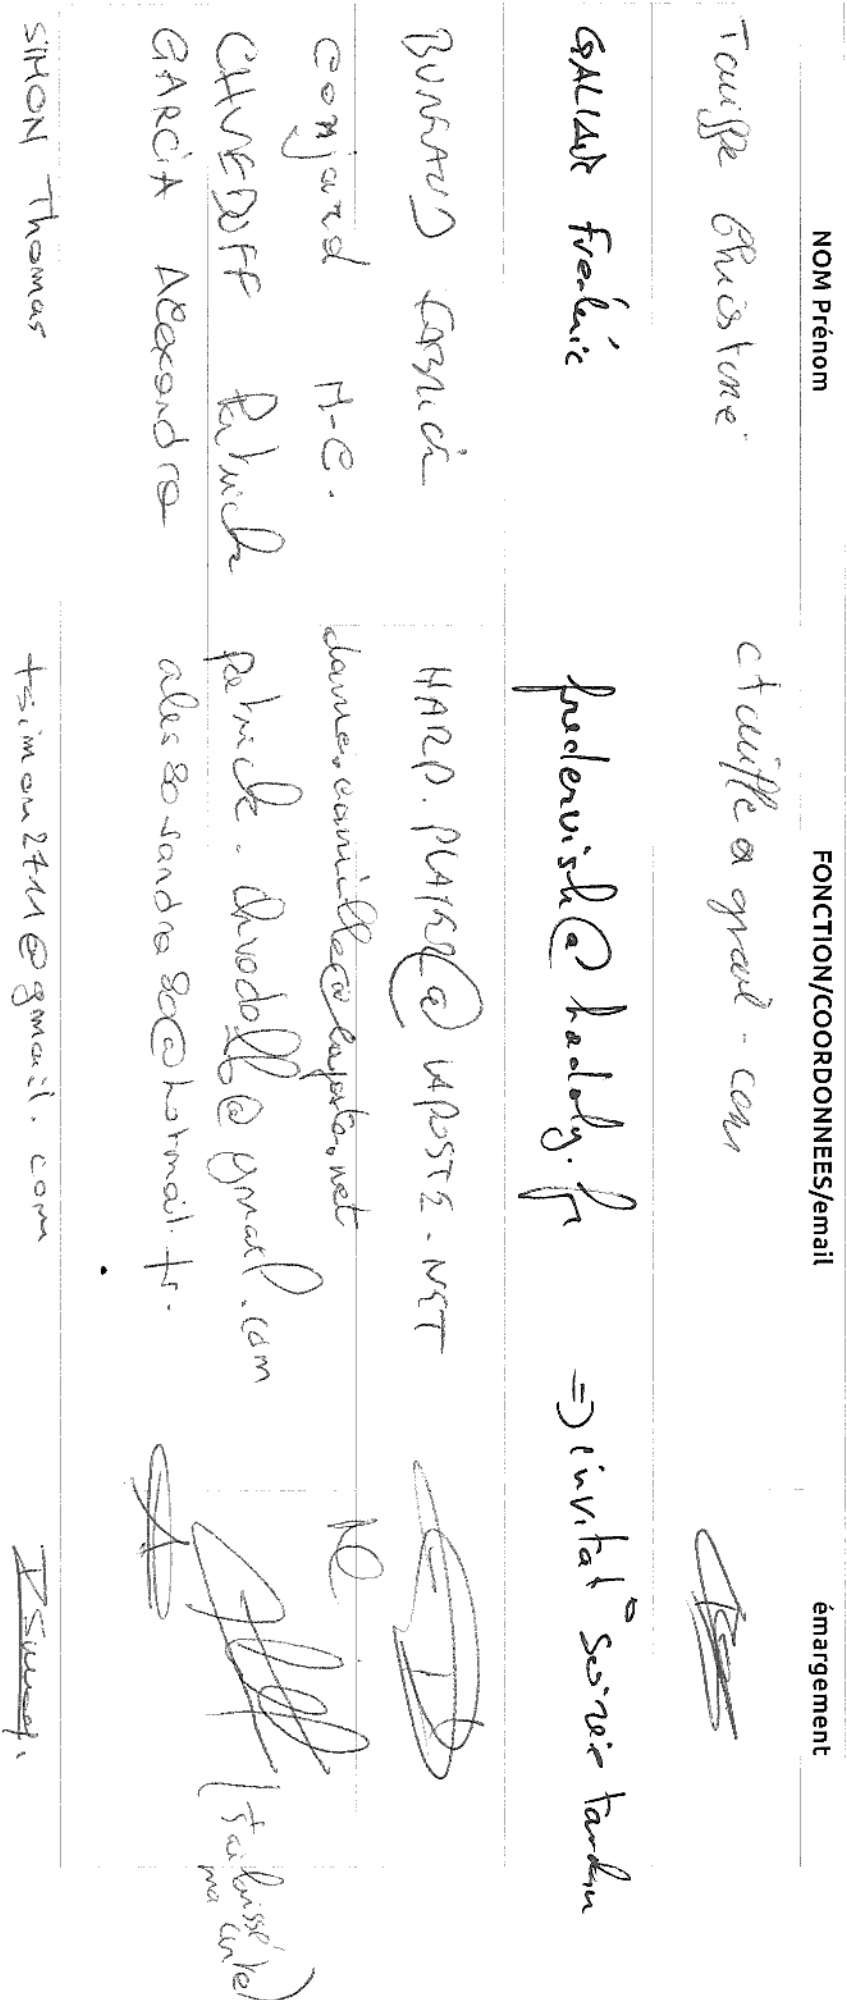 NOM Prénom FONCTION/COORDONNEES/email émargement
Tauiffe Christine ctauiffe@gmail.com
GALIANA Frédéric fredervish@hadaly.fr => invitat° soirée tandem
BUREAUD GABRIEL HARP.PLAYER@LAPOSTE.NET
Comjard M-C. @laposte.net MC
CHVEDOFF Patrick patrick.chvedoff@gmail.com (J'ai laissé
ma carte)
GARCIA Alexandra ales80sandra80@hotmail.fr.
SIMON Thomas tsimon2711@gmail.com TSimon